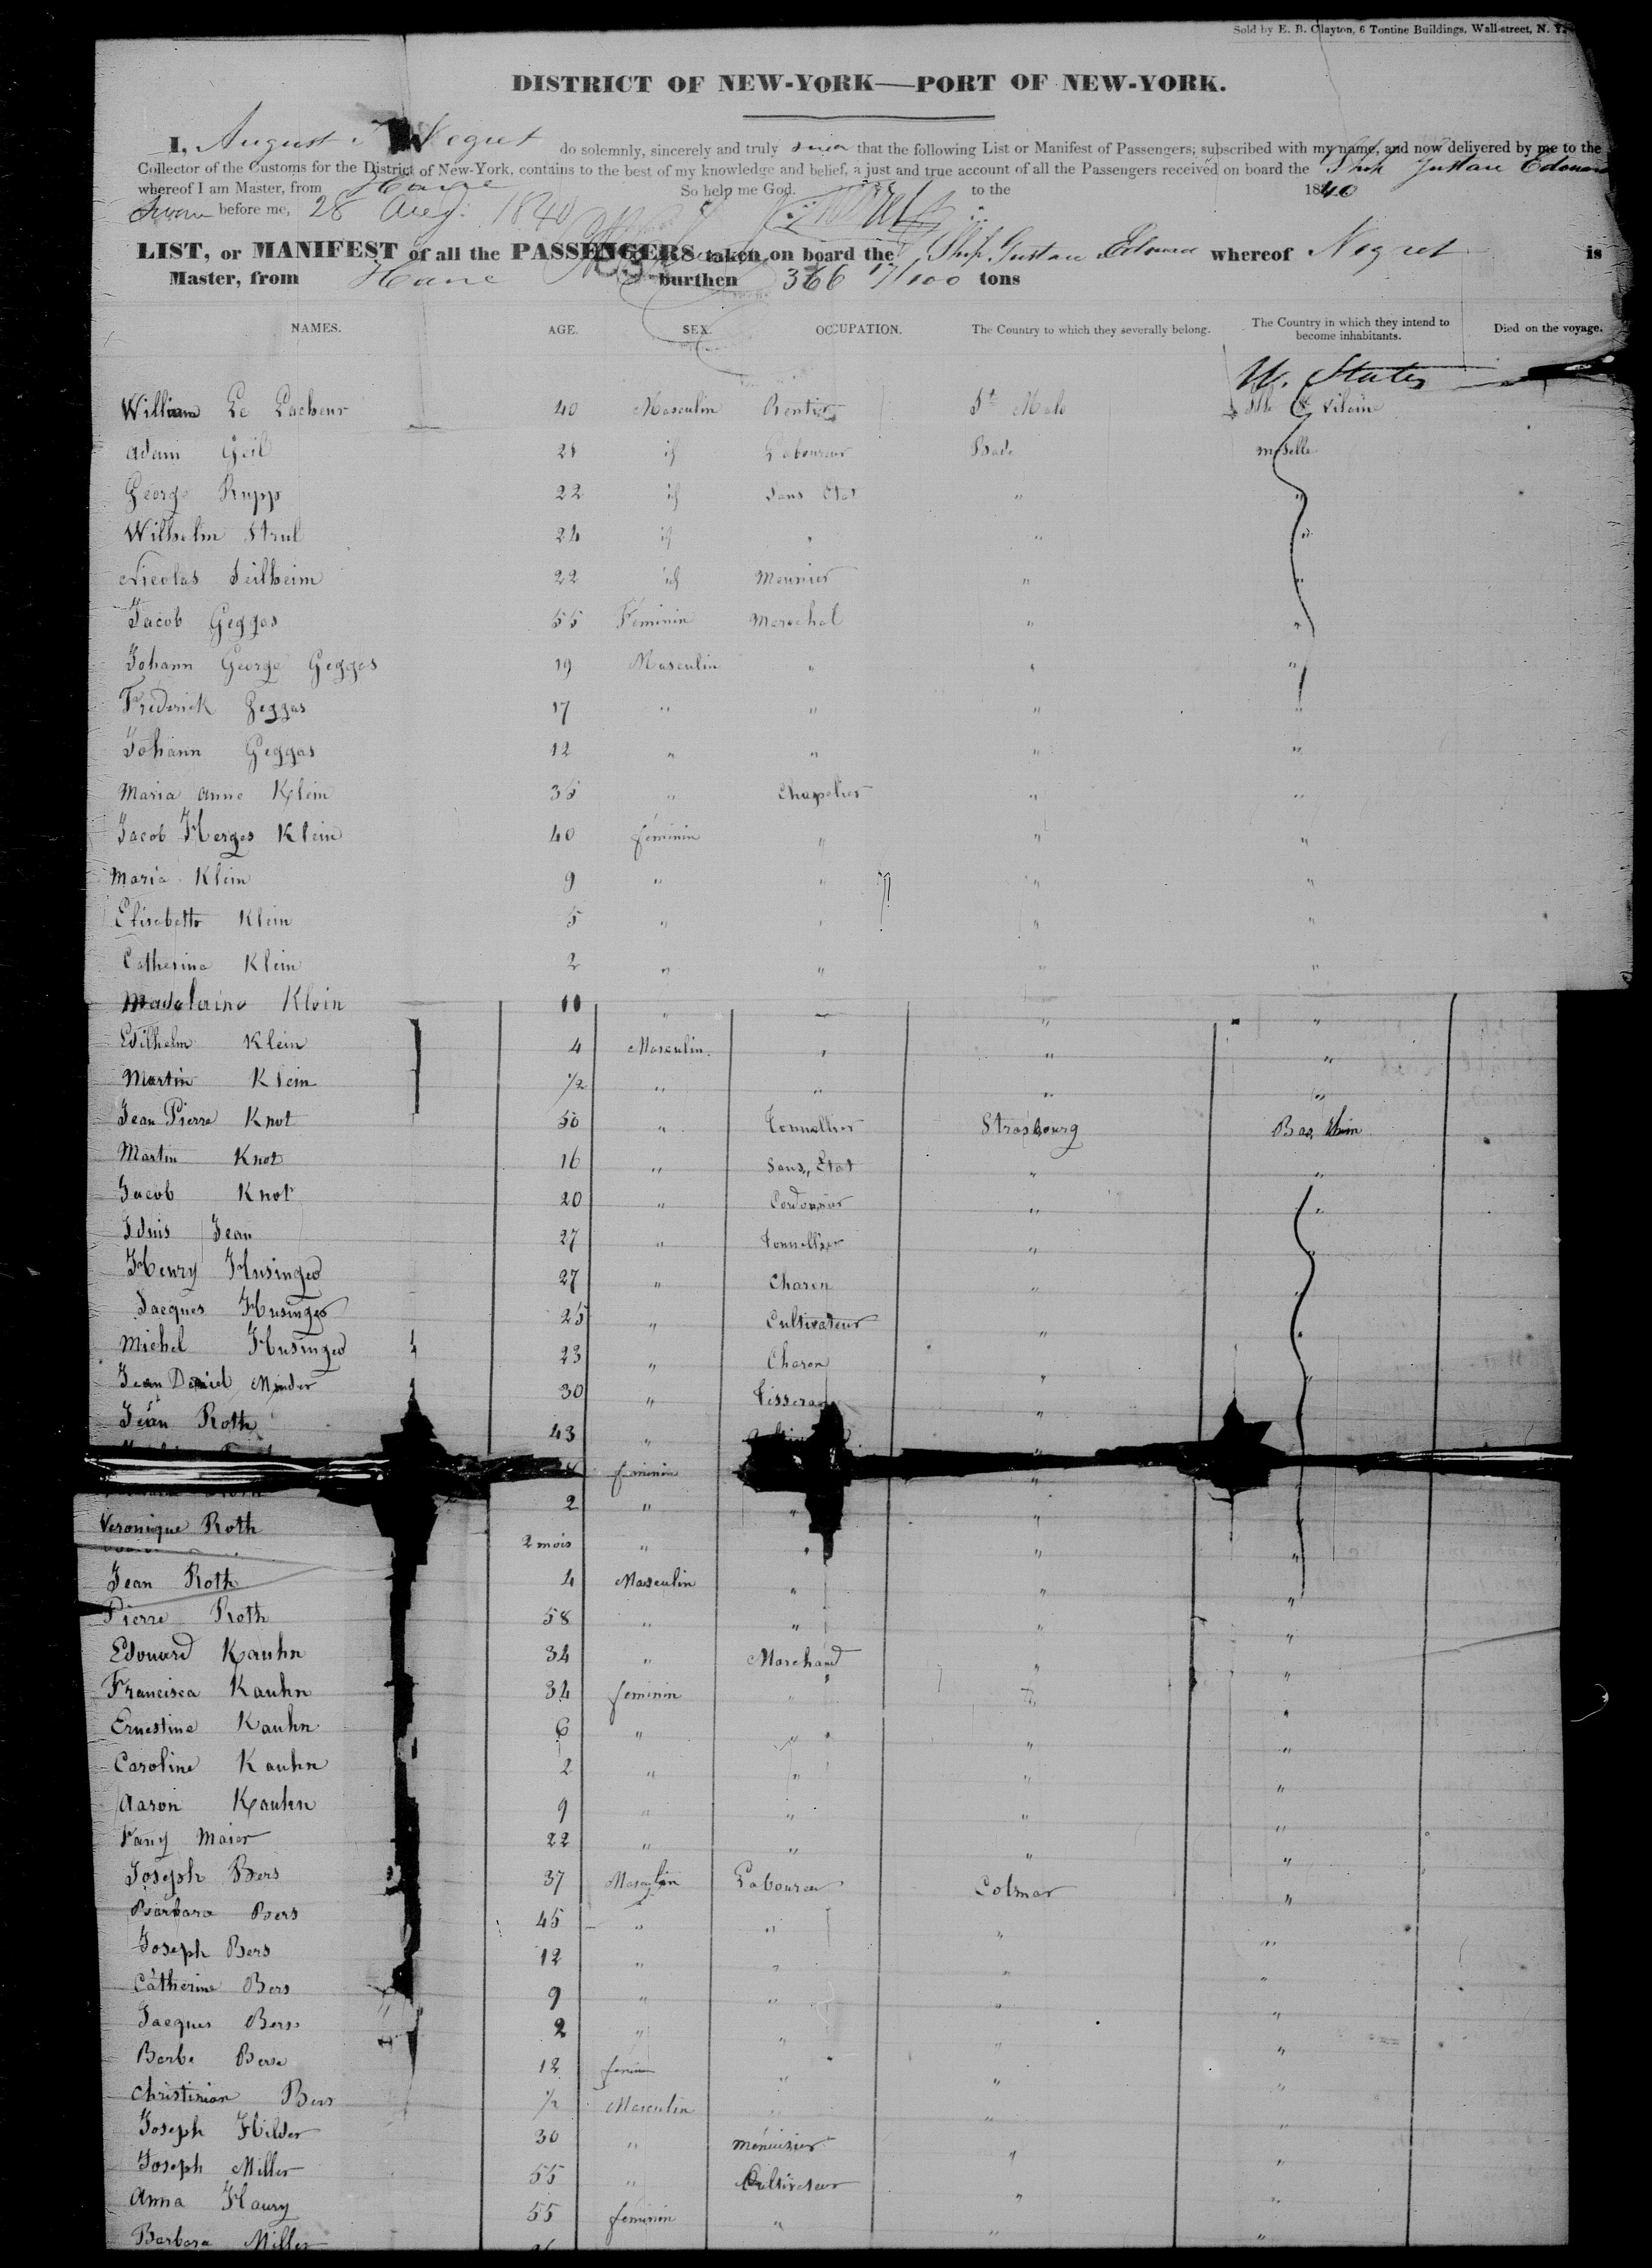 Sold by E. B. Clayton, 6 Tontine Buildings, Wall-street, N. Y.
DISTRICT OF NEW-YORK—PORT OF NEW-YORK.
I, August Negret do solemnly, sincerely and truly that the following List or Manifest of Passengers; subscribed with my name, and now delivered by me to the
Collector of the Customs for the District of New-York, contains to the best of my knowledge and belief, a just and true account of all the Passengers received on board the Ship Gustave Edouard
whereof I am Master, from Havre So help me God. to the 1840
Sworn before me, 28 Aug. 1840
LIST, or MANIFEST of all the PASSENGERS taken on board the Ship Gustave Edouard whereof Negret is
Master, from Havre burthen 366 17/100 tons
NAMES. AGE. SEX. OCCUPATION. The Country to which they severally belong. The Country in which they intend to become inhabitants. Died on the voyage.
U. States
William Le Lacheur 40 Masculin Rentier St Malo Ille & Vilaine
Adam Geil 21 id Laboureur Bade Moselle
George Rupp 22 id Sans Etat " "
Wilhelm Strul 24 id " " "
Nicolas Seilheim 22 id Meunier " "
Jacob Geggas 55 Feminin Marechal " "
Johann George Geggas 19 Masculin " " "
Frederick Geggas 17 " " " "
Johann Geggas 12 " " " "
Maria Anne Klein 36 " Chapelier " "
Jacob Herges Klein 40 feminin " " "
Maria Klein 9 " " " "
Elisabette Klein 5 " " " "
Catherine Klein 2 " " " "
Madelaine Klein 11 " " " "
Wilhelm Klein 4 Masculin " " "
Martin Klein 1/2 " " " "
Jean Pierre Knot 50 " Tonnellier Strasbourg Bas Rhin
Martin Knot 16 " Sans Etat " "
Jacob Knot 20 " Cordonnier " "
Jean 27 " Tonnellier " "
Henry Husinger 27 " Charon " "
Jacques Husinger 25 " Cultivateur " "
Michel Husinger 23 " Charon " "
Jean Daniel Minder 30 " Tisserand " "
Jean Roth 43 " "
feminin "
2 " " "
Veronique Roth 2 mois " " " "
Jean Roth 4 Masculin " " "
Pierre Roth 58 " " " "
Edouard Kauhn 34 " Marchand " "
Francisca Kauhn 34 feminin " " "
Ernestine Kauhn 6 " " " "
Caroline Kauhn 2 " " " "
Aaron Kauhn 9 " " " "
Fany Maier 22 " " " "
Joseph Bers 37 Masculin Laboureur Colmar "
Barbara Bers 45 " " " "
Joseph Bers 12 " " " "
Catherine Bers 9 " " " "
Jacques Bers 2 " " " "
Barbe Bers 12 femin " " "
Christinian Bers 1/2 Masculin " " "
Joseph Hilder 30 " Menuisier " "
Joseph Miller 55 " Cultivateur " "
Anna Haury 55 feminin " " "
Barbara Miller " "